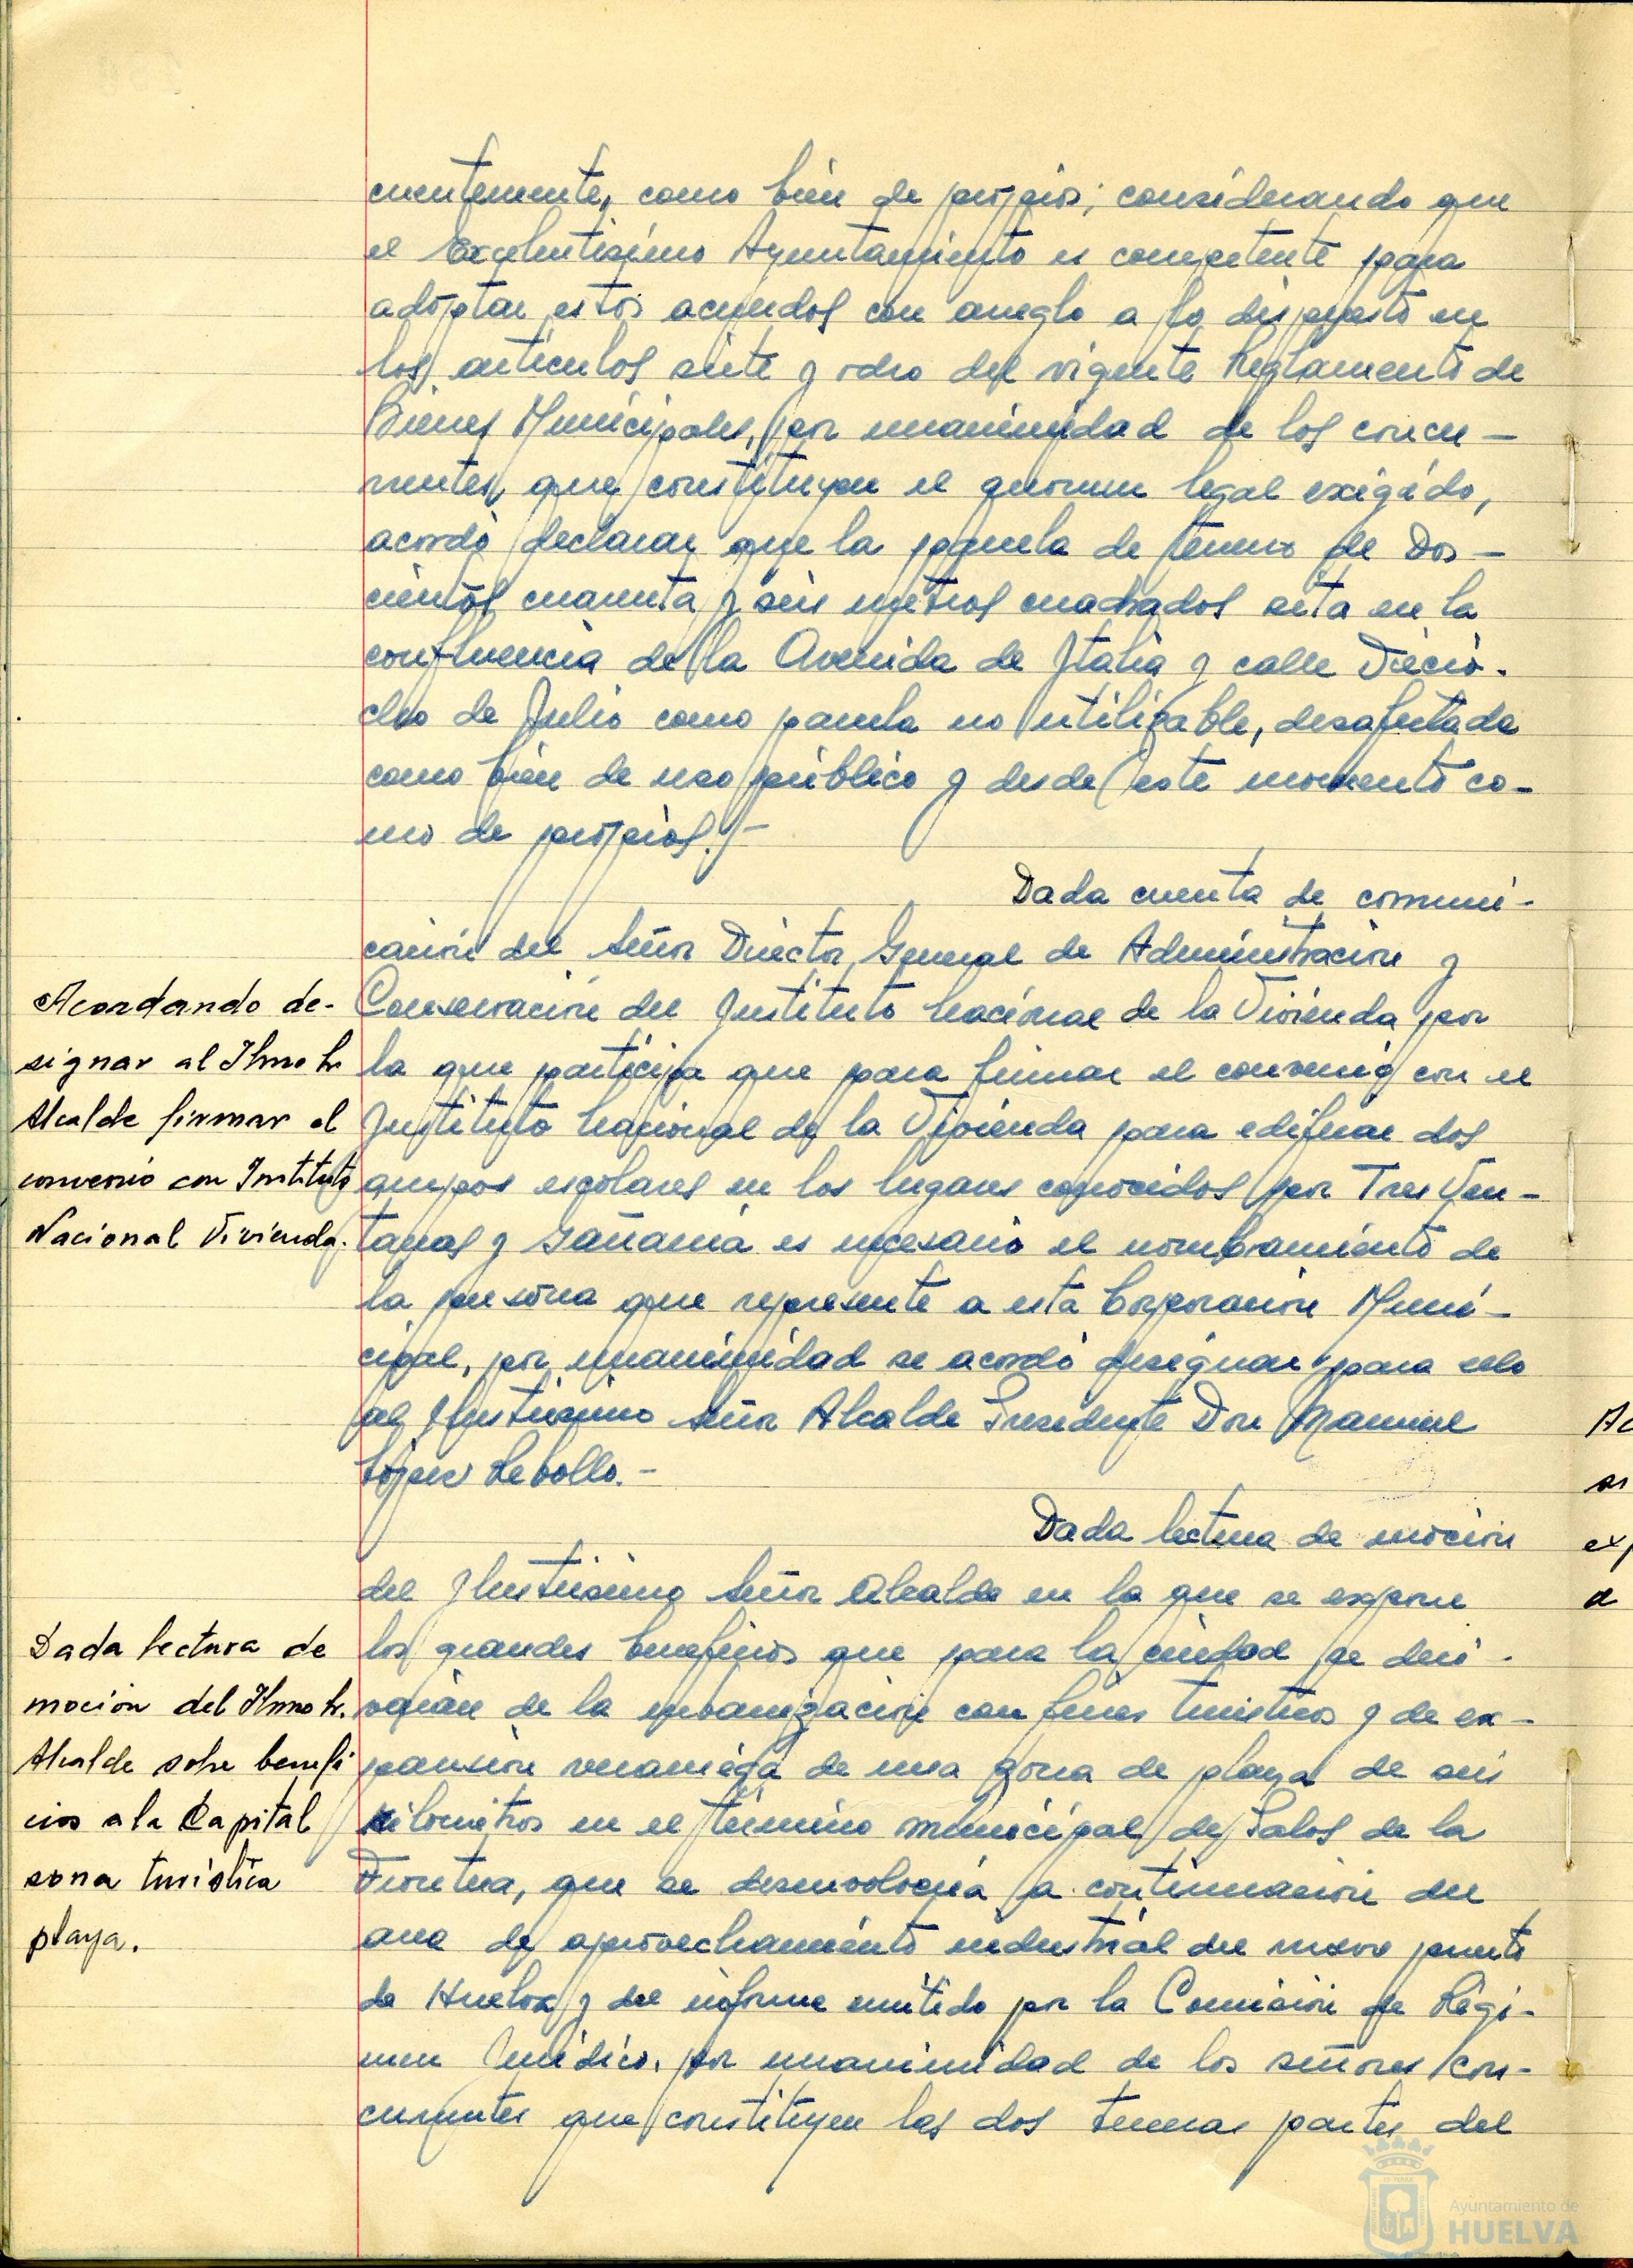 cuentemente, como bien de propios; considerando que
el Excelentísimo Ayuntamiento es competente para
adoptar estos acuerdos con arreglo a lo dispuesto en
los artículos siete y ocho del vigente Reglamento de
Bienes Municipales, por unanimidad de los concu-
rrentes, que constituyen el quorum legal exigido,
acordó declarar que la parcela de terreno de Dos-
cientos cuarenta y seis metros cuadrados sita en la
confluencia de la Avenida de Italia y calle Diecio-
cho de Julio como parcela no utilizable, desafectada
como bien de uso público y desde este momento co-
mo de propios.-
Dada cuenta de comuni-
cación del Señor Director General de Administración y
Conservación del Instituto Nacional de la Vivienda por
la que participa que para firmar el convenio con el
Instituto Nacional de la Vivienda para edificar dos
grupos escolares en los lugares conocidos por Tres Ven-
tanas y Gañanía es necesario el nombramiento de
la persona que represente a esta Corporación Muni-
cipal, por unanimidad se acordó designar para ello
al Ilustrísimo Señor Alcalde Presidente Don Manuel
López Rebollo.-
Acordando de-
signar al Ilmo Sr
Alcalde firmar el
convenio con Instituto
Nacional Vivienda.
Dada lectura de moción
del Ilustrísimo Señor Alcalde en la que se expone
los grandes beneficios que para la ciudad se deri-
varían de la urbanización con fines turísticos y de ex-
pansión veraniega de una zona de playa de seis
kilometros en el término municipal de Palos de la
Frontera, que se desenvolvería a continuación del
area de aprovechamiento industrial del nuevo puerto
de Huelva y del informe emitido por la Comisión de Régi-
men Jurídico, por unanimidad de los señores con-
currentes que constituyen las dos terceras partes del
Dada lectura de
moción del Ilmo Sr.
Alcalde sobre benefi
cios a la Capital
zona turística
playa.
Ayuntamiento de
HUELVA